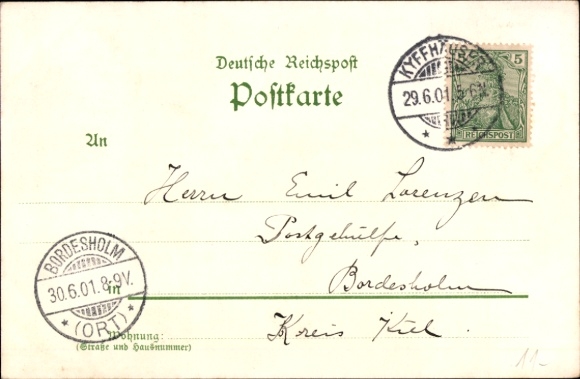 Deutsche Reichspost
Postkarte
KYFFHÄUSER
29.6.01. 5-6N.
5
REICHSPOST
An
Herrn Emil Lorenzen
Postgehülfe,
Bordesholm
Kreis Kiel
BORDESHOLM
30.6.01. 8-9V.
* (ORT) *
in
Wohnung:
(Straße und Hausnummer)
11-